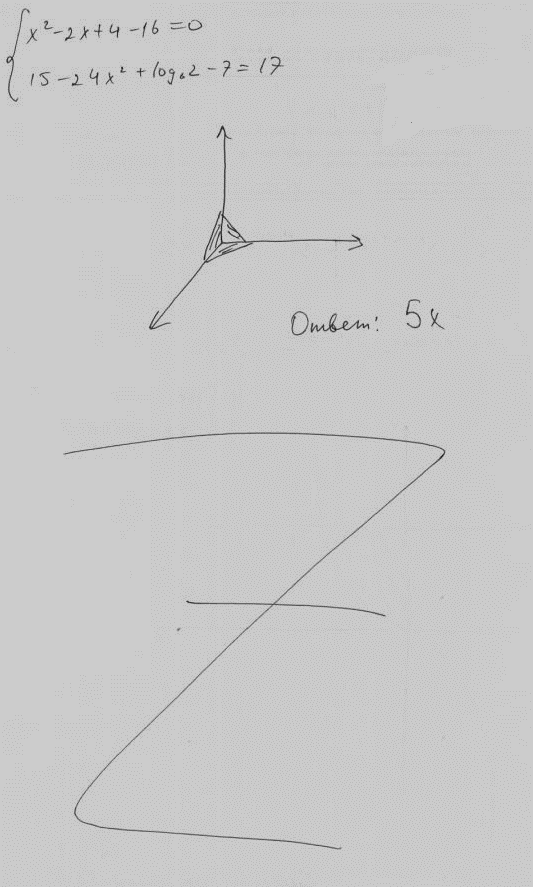 x²-2x+4-16=0
15-24x²+log₆2-7=17
Ответ: 5x
Z